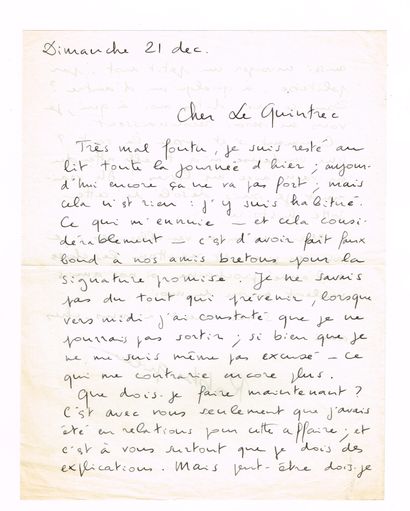 Dimanche 21 dec.
Cher Le Quintrec
Très mal foutu, je suis resté au
lit toute la journée d'hier ; aujour-
d'hui encore ça ne va pas fort ; mais
cela n'est rien : j'y suis habitué.
Ce qui m'ennuie — et cela consi-
dérablement — c'est d'avoir fait faux
bond à nos amis bretons pour la
signature promise. Je ne savais
pas du tout qui prévenir, lorsque
vers midi j'ai constaté que je ne
pourrais pas sortir ; si bien que je
ne me suis même pas excusé — ce
qui me contrarie encore plus.
Que dois-je faire maintenant ?
C'est avec vous seulement que j'avais
été en relations pour cette affaire ; et
c'est à vous surtout que je dois des
explications. Mais peut-être dois-je